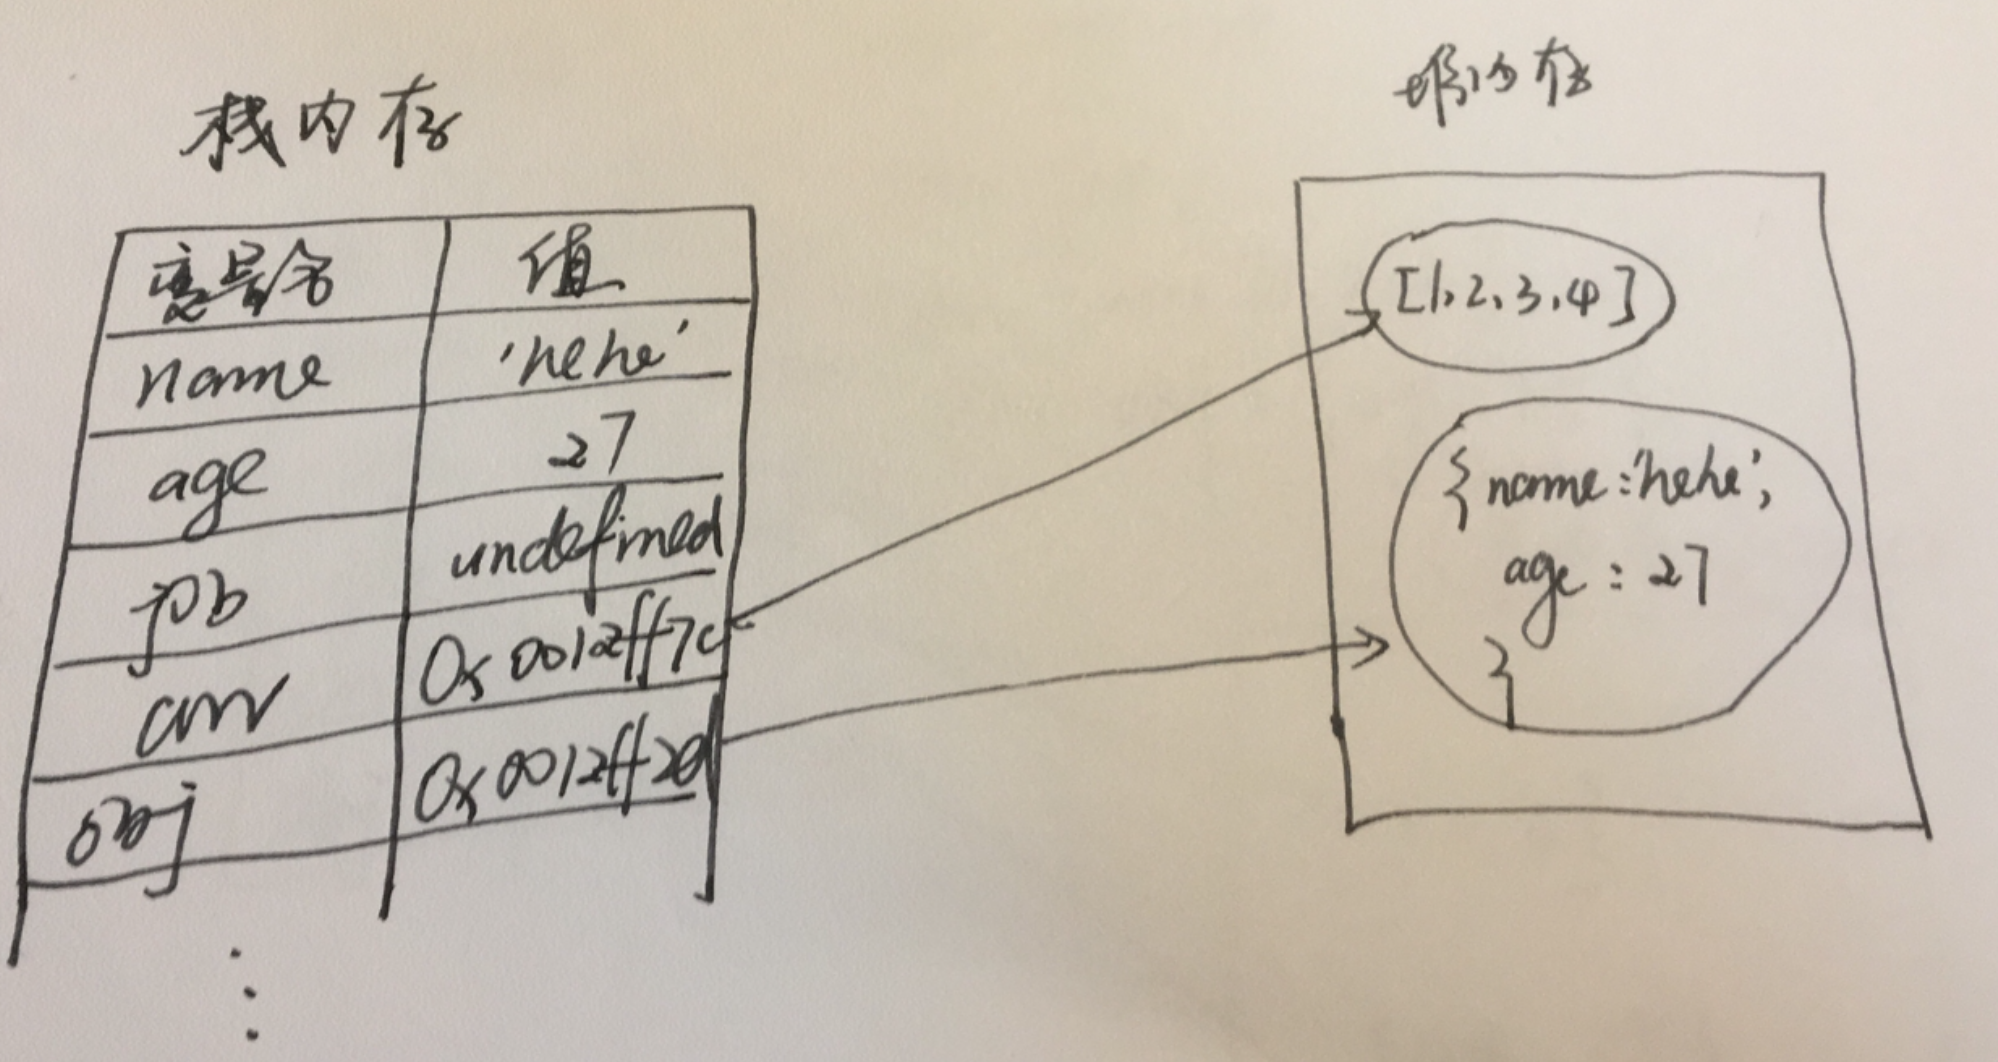 栈内存
变量名 值
name 'hehe'
age 27
job undefined
arr 0x0012ff7c
obj 0x0012ff20
堆内存
[1,2,3,4]
{name:'hehe',
age:27
}